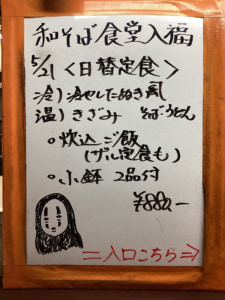 和そば食堂入福
5/21 <日替定食>
冷) 冷やしたぬき風
温) きざみ そばうどん
○炊込ご飯
(ザル定食も)
○小鉢 2品付
¥880,-
＝入口こちら⇒